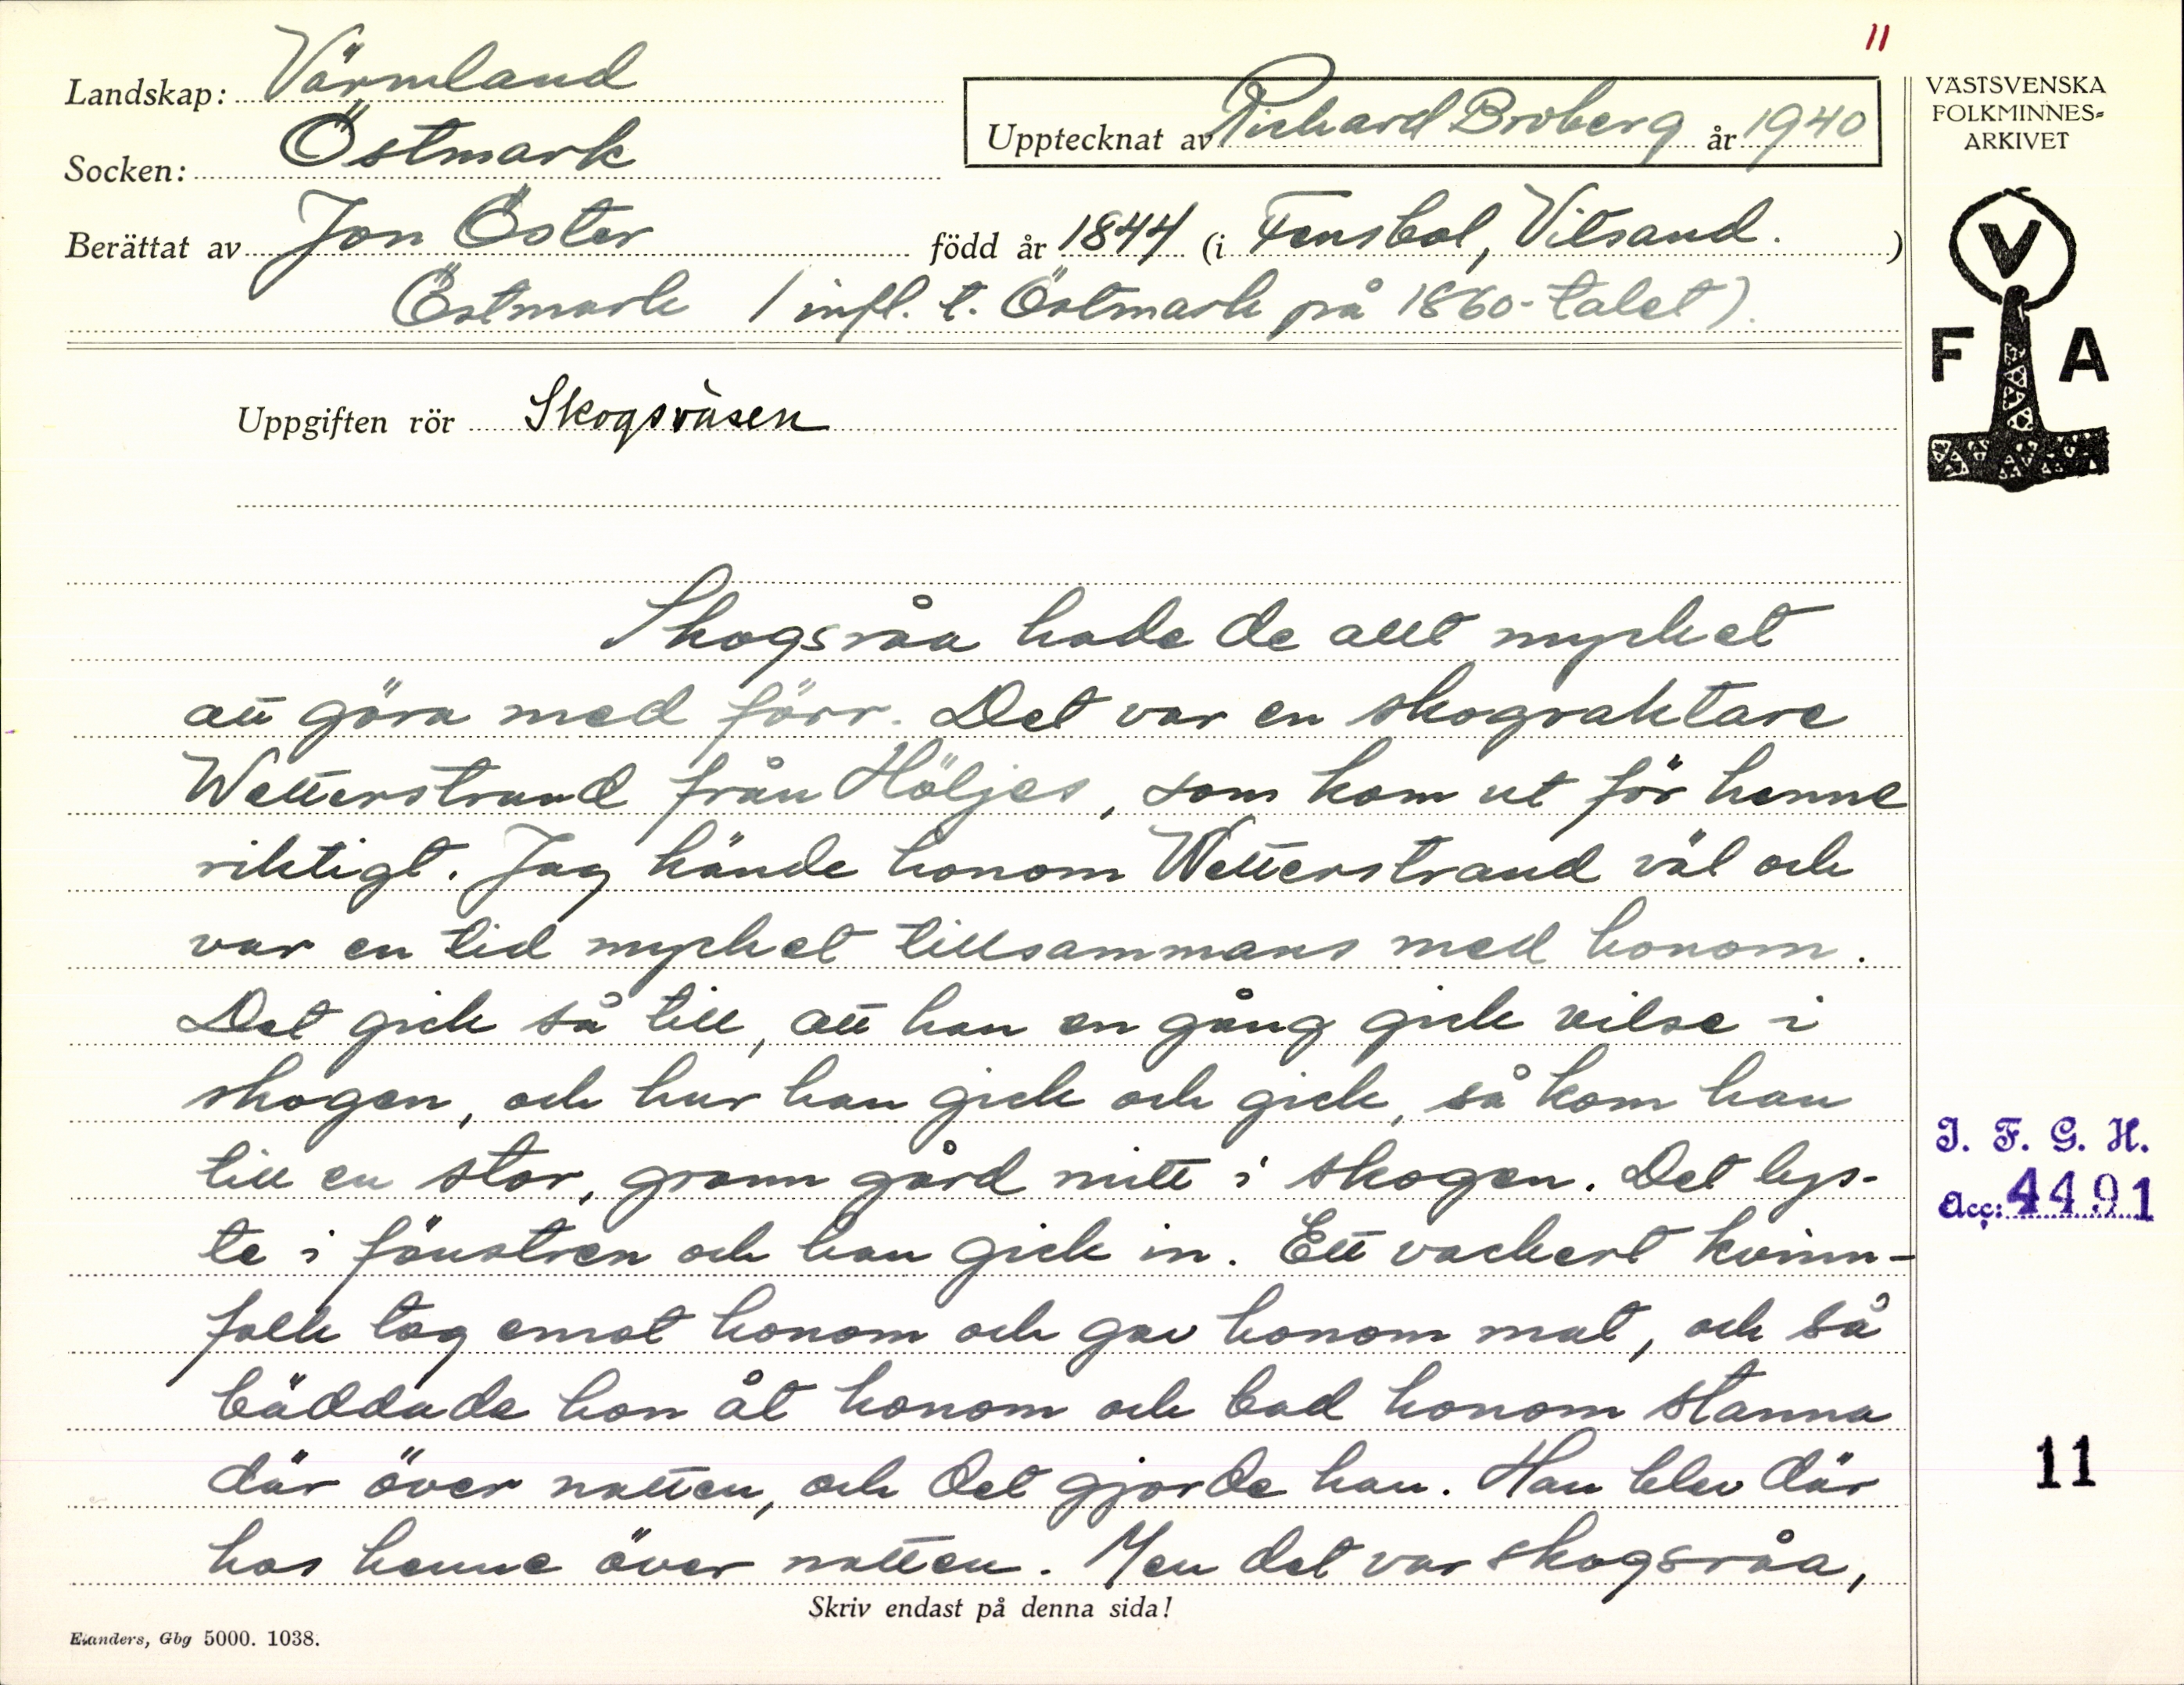 11
Landskap: Värmland
Upptecknat av Richard Broberg år 1940
Socken: Östmark
Berättat av Jon Öster född år 1844 (i Fensbol, Vitsand. )
Östmark (infl. t. Östmark på 1860-talet).
VÄSTSVENSKA
FOLKMINNES-
ARKIVET
V
F A
Uppgiften rör Skogsväsen
Skogsråa hade de allt mycket
att göra med förr. Det var en skogvaktare
Wetterstrand från Höljes, som kom ut för henne
riktigt. Jag kände honom Wetterstrand väl och
var en tid mycket tillsammans med honom.
Det gick så till, att han en gång gick vilse i
skogen, och hur han gick och gick, så kom han
till en stor, grann gård mitt i skogen. Det lys-
te i fönstren och han gick in. Ett vackert kvinn-
folk tog emot honom och gav honom mat, och så
bäddade hon åt honom och bad honom stanna
där över natten, och det gjorde han. Han blev där
hos henne över natten. Men det var skogsråa,
Skriv endast på denna sida!
Elanders, Gbg 5000. 1038.
I. F. G. H.
Acc: 4491
11